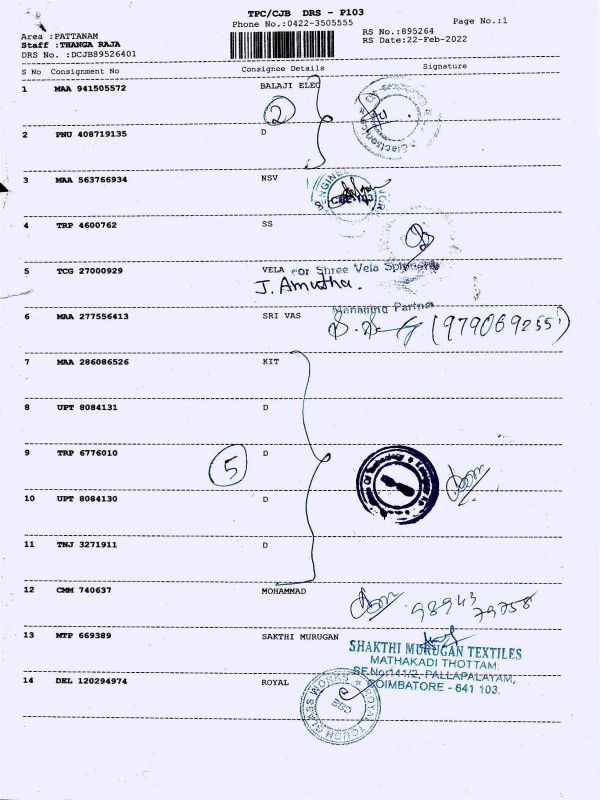 TPC/CJB DRS - P103
Phone No.:0422-3505555
Page No.:1
Area :PATTANAM
Staff :THANGA RAJA
DRS No. :DCJB89526401
RS No.:895264
RS Date:22-Feb-2022
S No Consignment No Consignee Details Signature
1 MAA 941505572 BALAJI ELEC
2
2 PNU 408719135 D
3 MAA 563766934 NSV
4 TRP 4600762 SS
5 TCG 27000929 VELA For Shree Vela
J. Amutha.
Managing Partner
6 MAA 277556413 SRI VAS
7 MAA 286086526 KIT
8 UPT 8084131 D
9 TRP 6776010 D
5
10 UPT 8084130 D
11 TNJ 3271911 D
12 CMM 740637 MOHAMMAD
98943 79758
13 MTP 669389 SAKTHI MURUGAN
SHAKTHI MURUGAN TEXTILES
MATHAKADI THOTTAM,
SF.No:141/2, PALLAPALAYAM,
COIMBATORE - 641 103.
14 DEL 120294974 ROYAL
ROYAL TOUGH GLASS WORKS
CBE